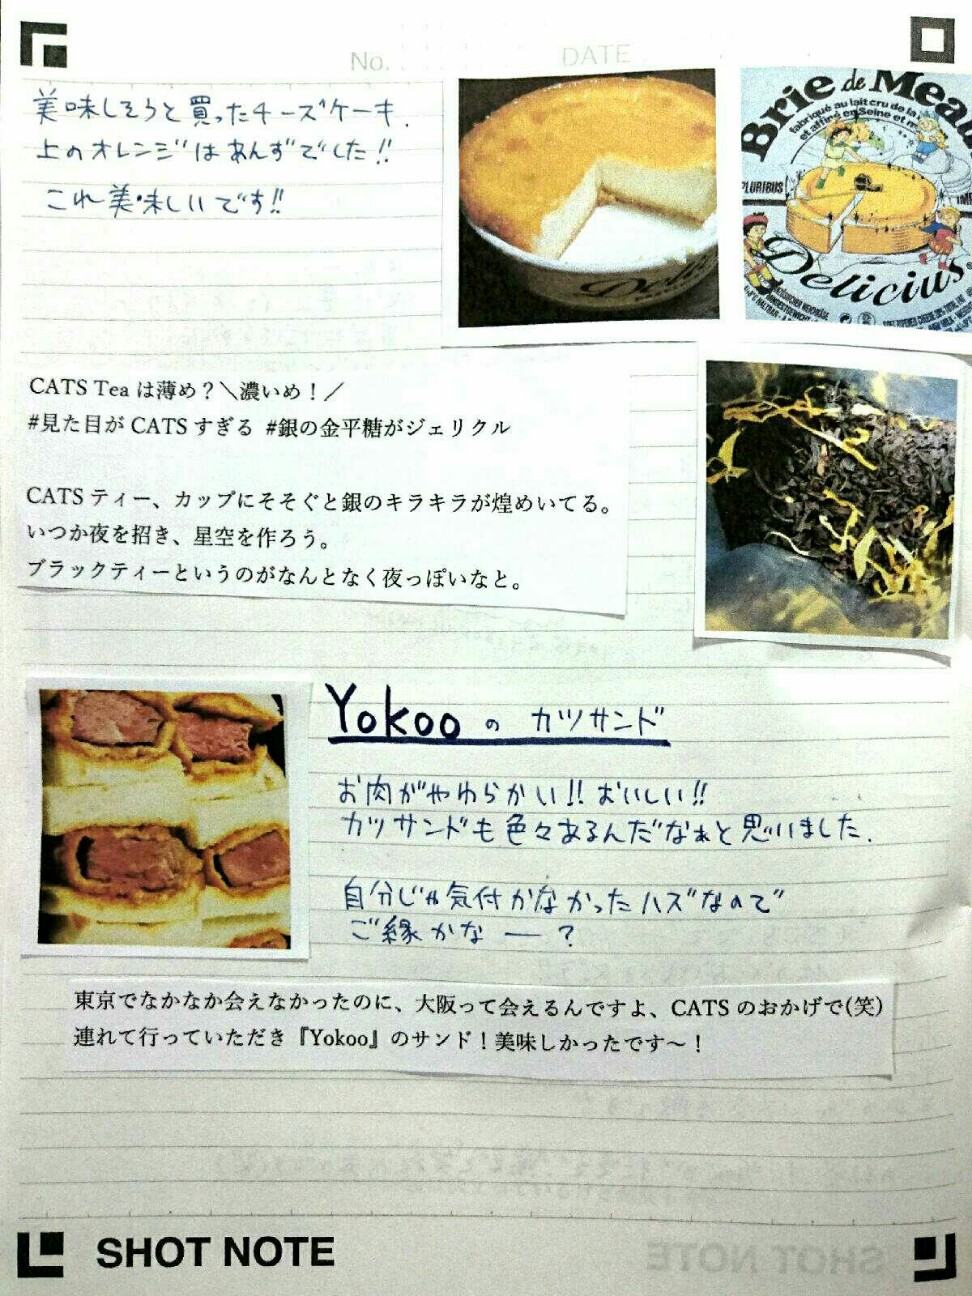 No.
DATE
美味しそうと買ったチーズケーキ.
上のオレンジはあんずでした!!
これ美味しいです!!
Brie de Meaux
fabriqué au lait cru de la
et affiné en Seine et
PLURIBUS
Delicius
CATS Tea は薄め？＼濃いめ！／
#見た目が CATS すぎる #銀の金平糖がジェリクル
CATS ティー、カップにそそぐと銀のキラキラが煌めいてる。
いつか夜を招き、星空を作ろう。
ブラックティーというのがなんとなく夜っぽいなと。
Yokoo の カツサンド
お肉がやわらかい!! おいしい!!
カツサンドも色々あるんだなぁと思いました.
自分じゃ気付かなかったハズなので
ご縁かな ー ?
東京でなかなか会えなかったのに、大阪って会えるんですよ、CATS のおかげで(笑)
連れて行っていただき『Yokoo』のサンド！美味しかったです〜！
SHOT NOTE